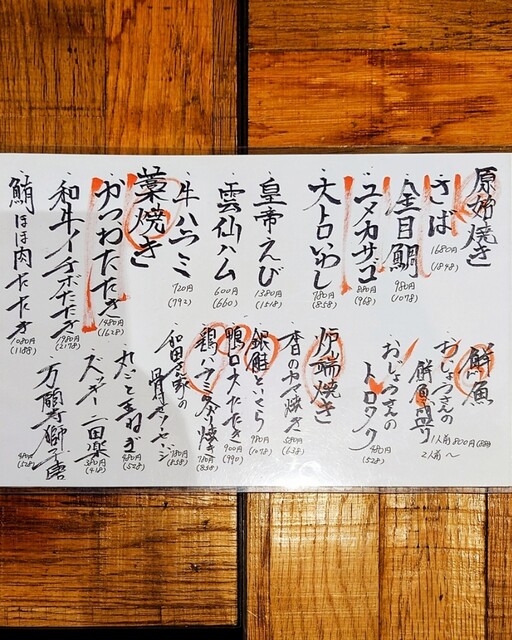 原始焼き
さば
1680円
(1848)
金目鯛
980円
(1078)
ユメカサゴ
880円
(968)
大トロいわし
780円
(858)
皇帝えび
1380円
(1518)
雲仙ハム
600円
(660)
牛ハラミ
720円
(792)
藁焼き
かつおたたき
1480円
(1628)
和牛イチボたたき
1980円
(2178)
鮪ほほ肉たたき
1080円
(1188)
鮮魚
おじょうさんの
鮮魚盛り
1人前 800円 (880)
2人前〜
おじょうさんの
トロタク
480円
(528)
炉端焼き
580円
(638)
銀鮭といくら
980円
(1078)
鴨ロースたたき
900円
(990)
鶏ハラミ
焼き
780円
(858)
和田さん家の
骨付きソーセージ
780円
(858)
丸ごと玉ねぎ
480円
(528)
ズッキーニ田楽
380円
(418)
万願寺獅子唐
480円
(528)